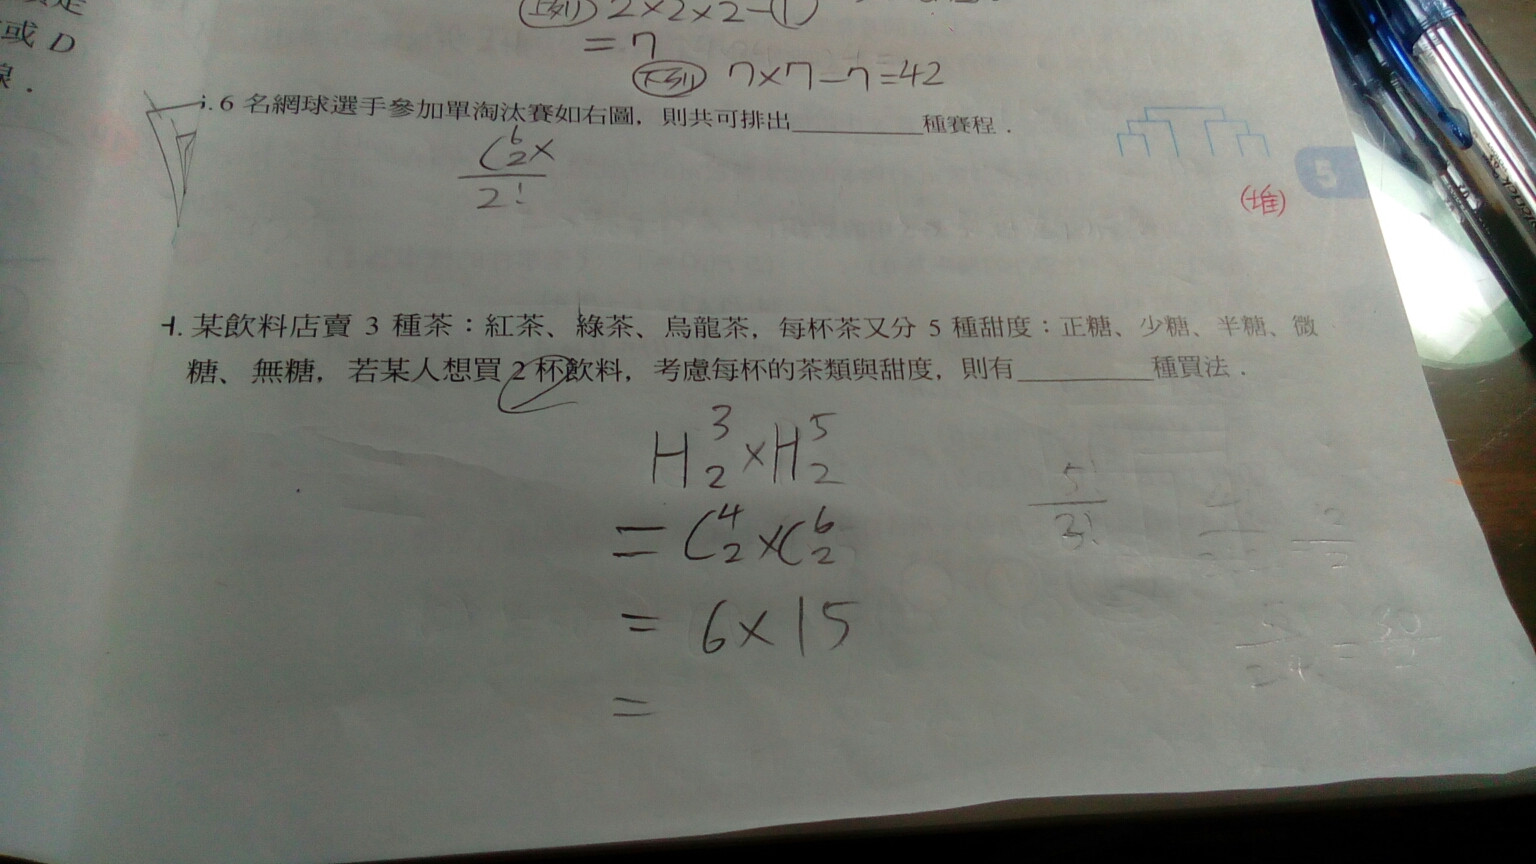 或 D
線．
上列 2×2×2−1
= 7
下列 7×7−7=42
6 名網球選手參加單淘汰賽如右圖，則共可排出________種賽程．
C⁶₂×
2!
(堆)
5
某飲料店賣 3 種茶：紅茶、綠茶、烏龍茶，每杯茶又分 5 種甜度：正糖、少糖、半糖、微
糖、無糖，若某人想買 2 杯飲料，考慮每杯的茶類與甜度，則有________種買法．
H³₂×H⁵₂
= C⁴₂×C⁶₂
= 6×15
=
5!
3!